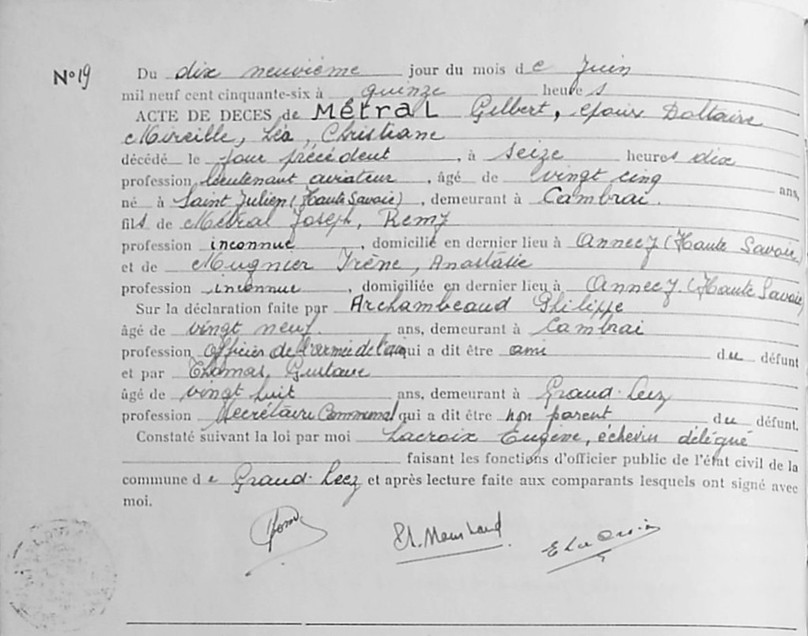 N°19
Du dix neuvième jour du mois de Juin
mil neuf cent cinquante-six à quinze heures
ACTE DE DECES de Métral Gilbert, époux Doltaire
Mireille, Léa, Christiane
décédé le jour précédent, à seize heures dix
profession lieutenant aviateur, âgé de vingt cinq ans,
né à Saint Julien (Haute Savoie), demeurant à Cambrai.
fils de Métral Joseph, Remy
profession inconnue, domicilié en dernier lieu à Annecy (Haute Savoie)
et de Mugnier Irène, Anastasie
profession inconnue, domiciliée en dernier lieu à Annecy. (Haute Savoie)
Sur la déclaration faite par Archambeaud Philippe
âgé de vingt neuf ans, demeurant à Cambrai
profession officier de l'armée de l'air qui a dit être ami du défunt
et par Thomas, Gustave
âgé de vingt huit ans, demeurant à Grand-Leez
profession Secrétaire Communal qui a dit être non parent du défunt.
Constaté suivant la loi par moi Lacroix Eugène, échevin délégué
faisant les fonctions d'officier public de l'état civil de la
commune de Grand-Leez et après lecture faite aux comparants lesquels ont signé avec
moi.